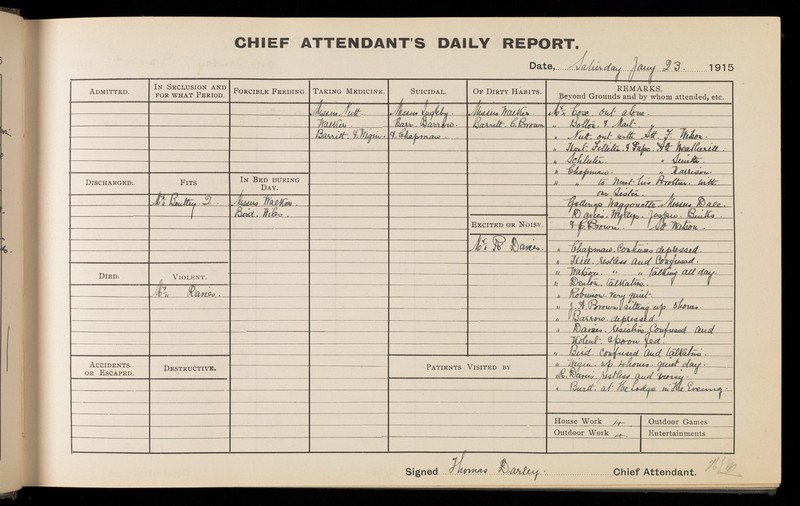 CHIEF ATTENDANT'S DAILY REPORT.
Date, Saturday Jany 23. 1915
ADMITTED.
IN SECLUSION AND FOR WHAT PERIOD.
FORCIBLE FEEDING.
TAKING MEDICINE.
Messrs Nutt.
Walker
Barritt.
SUICIDAL.
Messrs
Barrow.
& Chapman.
OF DIRTY HABITS.
Messrs Walker.
Barritt. C. Brown
DISCHARGED.
FITS
Mr. 2.
IN BED DURING DAY.
Messrs Walker.
Bird. Wiles.
EXCITED OR NOISY.
Mr. R. Davies.
DIED.
VIOLENT.
Mr. Davies.
ACCIDENTS OR ESCAPED.
DESTRUCTIVE.
PATIENTS VISITED BY
REMARKS.
Beyond Grounds and by whom attended, etc.
Mr. out alone.
" Bolton. &
" Nutt. out with
" Kent.
" " Smith.
" Chapman. " Harrison.
" " to meet his Brother. with
our Sister.
Waggonette. Messrs Dale.
Davies. Phillips. Jaspers.
& C. Brown. Watson.
" Chapman. Continues depressed.
" Hill. restless and Confused.
" Watson. " " talking all day.
" Denton. talkative.
" Robinson. very quiet.
" J. A. Brown. sitting up 3 hours.
" Barrow. depressed.
" Davies. resistive, Confused and
Violent. Spoon fed.
" Bird. Confused and talkative.
" up 4 hours. quiet day.
R. Davies. restless and noisy.
" Burtt. at the Lodge in the Evening.
House Work 4
Outdoor Work 4
Outdoor Games
Entertainments
Signed Thomas Darley. Chief Attendant.